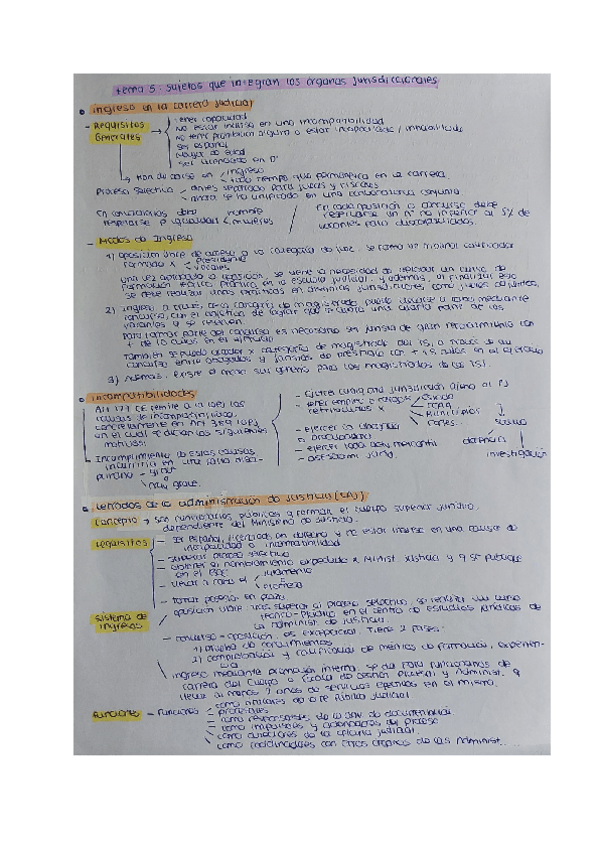 tema 5: sujetos que integran los órganos jurisdiccionales
ingreso en la carrera judicial
- Requisitos Generales
tener capacidad
no estar incurso en una incompatibilidad
no tener prohibición alguna o estar incapacitado / inhabilitado
ser español
mayor de edad
ser licenciado en Dº
Han de darse en
ingreso
todo tiempo que permanezca en la carrera.
Proceso selectivo
antes separado para jueces y fiscales
ahora se ha unificado en una convocatoria conjunta.
En convocatorias debe respetarse pº igualdad
hombre
mujeres
En cada oposición o concurso debe
reservarse un nº no inferior al 5% de
vacantes para discapacitados.
- Modos de Ingreso
1) oposición libre de acceso a la categoría de juez. se forma de tribunal calificador
formado x
presidente
vocales
una vez aprobada la oposición, se tiene la necesidad de un curso de
formación teórico práctico en la escuela judicial y además, al finalizar este
se debe realizar unas prácticas en distintas jurisdicciones como jueces adjuntos.
2) ingreso a través de la categoría de magistrado, puede mediante
concurso, con el objetivo de lograr que se cubra una cuarta parte de las
vacantes y se reserven
para formar parte del concurso es necesario ser jurista de gran reconocimiento con
+ de 10 años en el ejercicio
también se puede acceder x categoría de magistrado del TS, a través de un
concurso entre abogados y juristas de prestigio con + 15 años en el ejercicio
3) Además, existe para los magistrados de los TSJ.
incompatibilidades
Art 127 CE remite a la ley las
causas de incompatibilidad,
concretamente en Art 389 LOPJ
en el cual se dictan los siguientes
motivos:
Incumplimiento de estas causas
incurriría en una falta disci-
plinaria
grave
muy grave.
- Ejercer cualquier jurisdicción ajena al PJ
- tener empleo o cargos retribuidos x
Estado
CCAA
Municipios
Cortes..
salvo
docencia
investigación
- ejercer la abogacía
o procuraduría
- ejercer toda actv mercantil
- asesoram. juríd.
Letrados de la administración de justicia (LAJ)
Concepto → son funcionarios públicos q forman el cuerpo superior jurídico,
dependiente del Ministerio de Justicia.
Requisitos
- Ser Español, licenciado en derecho y no estar incurso en una causa de
incapacidad o incompatibilidad
- superar proceso selectivo
- obtener el nombramiento expedido x Minist. Justicia y q se publique
en el BOE
- llevar a cabo el
juramento
promesa
- tomar posesión en plazo
sistema de ingreso
oposición libre: tras superar el proceso selectivo, se realiza un curso
teórico-práctico en el centro de estudios jurídicos de
la administ. de justicia.
concurso - oposición. es excepcional. Tiene 2 fases:
1) prueba de conocimientos
2) comprobación y calificación de méritos de formación, experien-
cia
ingreso mediante promoción interna. se da para funcionarios de
carrera del cuerpo o Escala de gestión Procesal y Administ. q
lleve al menos 2 años de servicios efectivos en el mismo.
funciones - funciones
como titulares de la fe pública judicial
procesales
como responsables de la actv de documentación
como impulsores y ordenadores del proceso
como directores de la oficina judicial.
como coordinadores con otros órganos de las Administ..